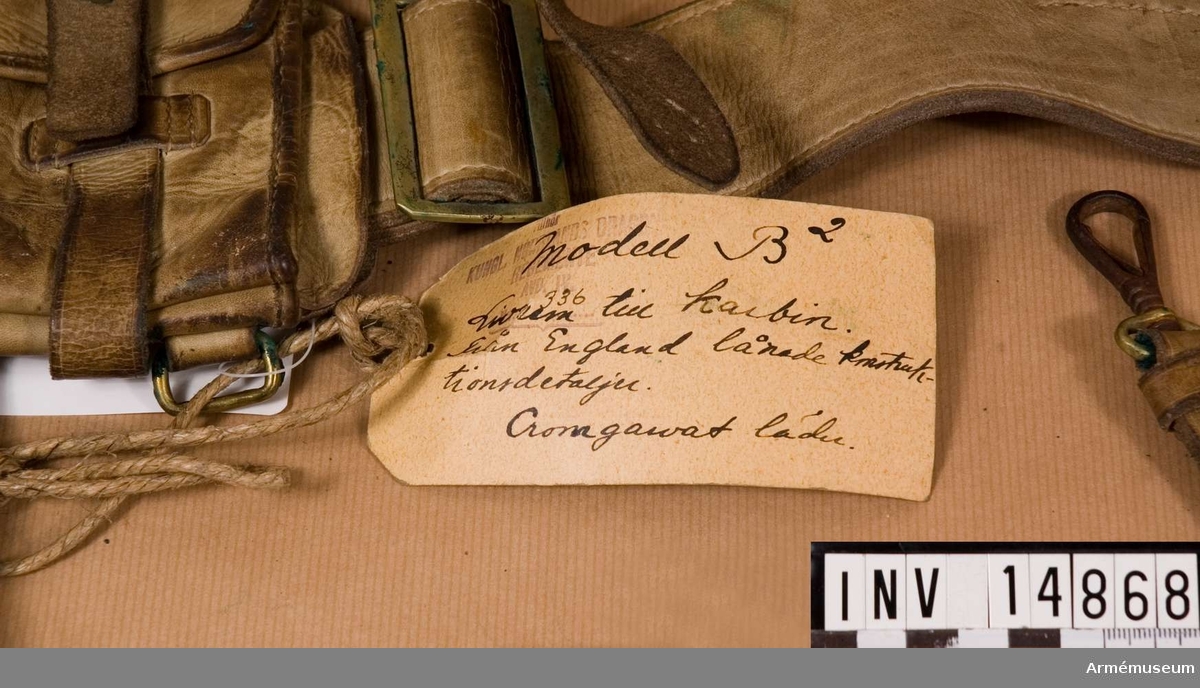 KUNGL. NORRLANDS DRAGON
Modell B²
336
Livrem till Karbin.
Från England lånade konstruk-
tionsdetaljer.
Cromgarvat läder.
INV 14868
Armémuseum